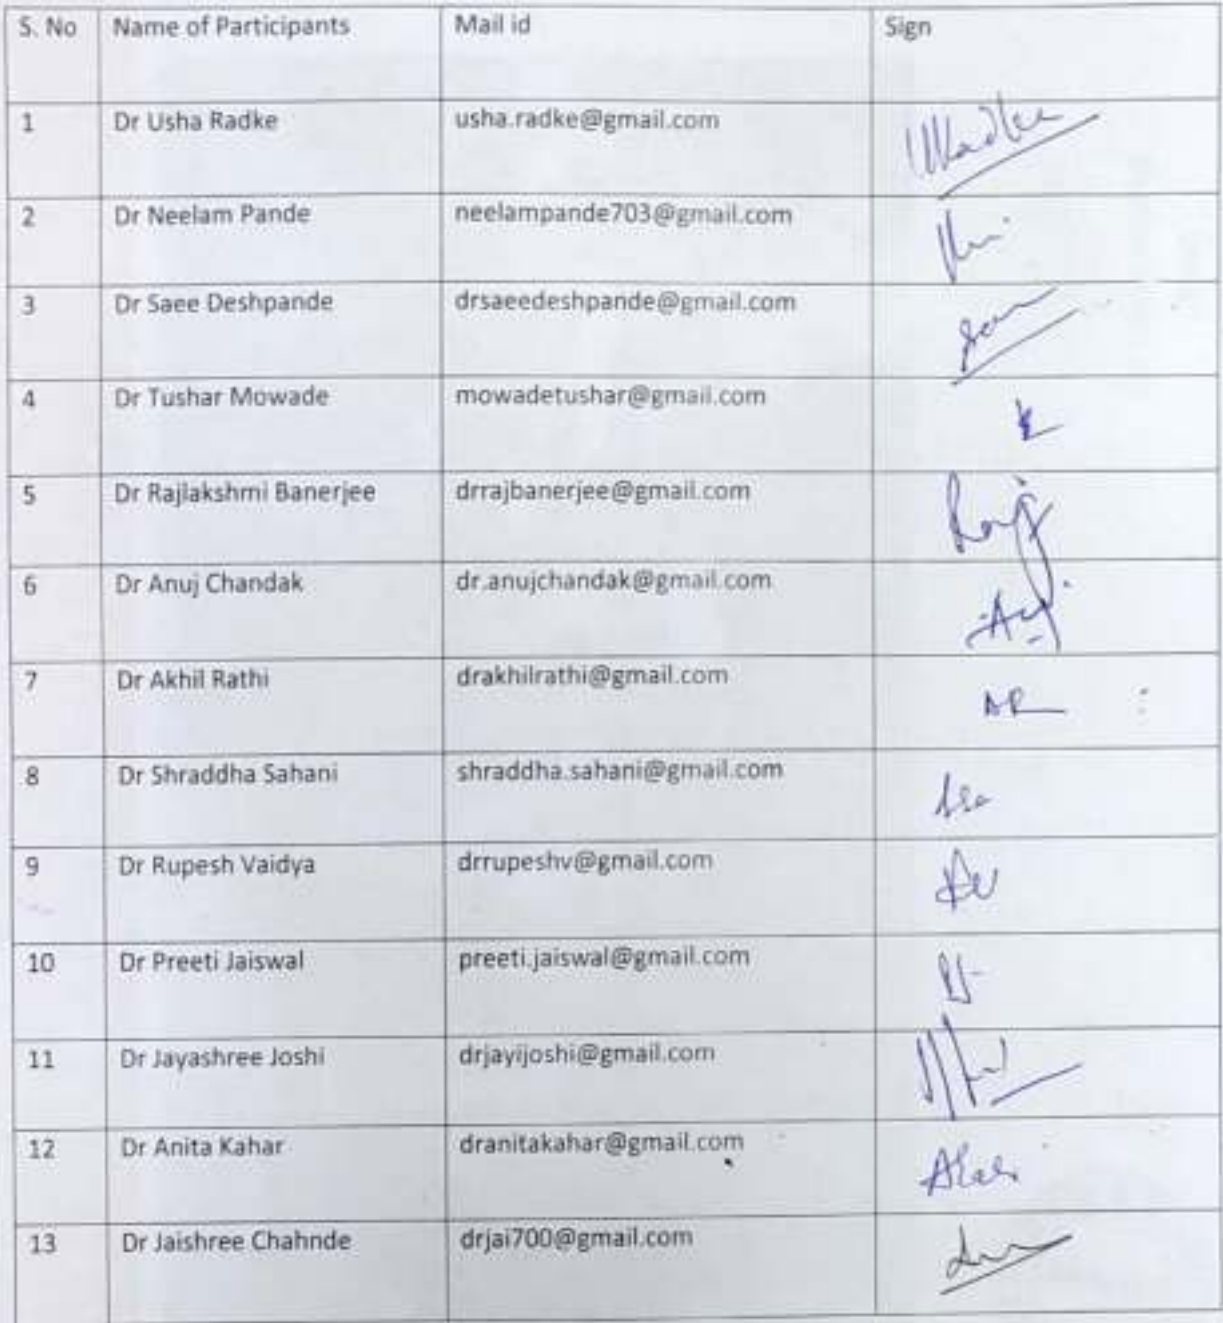 S. No Name of Participants Mail id Sign
1 Dr Usha Radke usha.radke@gmail.com
2 Dr Neelam Pande neelampande703@gmail.com
3 Dr Saee Deshpande drsaeedeshpande@gmail.com
4 Dr Tushar Mowade mowadetushar@gmail.com
5 Dr Rajlakshmi Banerjee drrajbanerjee@gmail.com
6 Dr Anuj Chandak dr.anujchandak@gmail.com
7 Dr Akhil Rathi drakhilrathi@gmail.com AR
8 Dr Shraddha Sahani shraddha.sahani@gmail.com
9 Dr Rupesh Vaidya drrupeshv@gmail.com
10 Dr Preeti Jaiswal preeti.jaiswal@gmail.com
11 Dr Jayashree Joshi drjayijoshi@gmail.com
12 Dr Anita Kahar dranitakahar@gmail.com
13 Dr Jaishree Chahnde drjai700@gmail.com